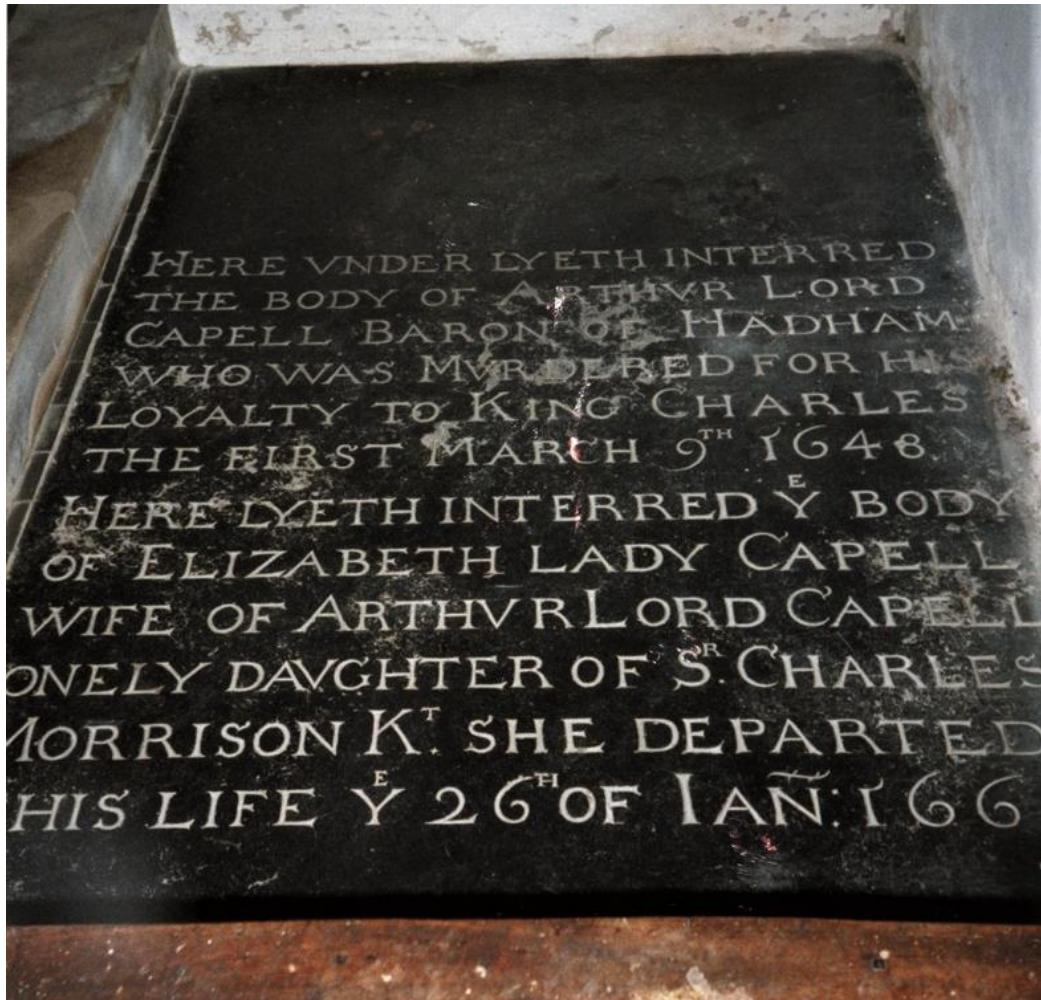 HERE VNDER LYETH INTERRED
THE BODY OF ARTHVR LORD
CAPELL BARON OF HADHAM
WHO WAS MVRDERED FOR HIS
LOYALTY TO KING CHARLES
THE FIRST MARCH 9TH 1648.
HERE LYETH INTERRED YE BODY
OF ELIZABETH LADY CAPELL
WIFE OF ARTHVR LORD CAPELL
ONELY DAVGHTER OF SR. CHARLES
MORRISON KT. SHE DEPARTED
HIS LIFE YE 26TH OF IAÑ: 166